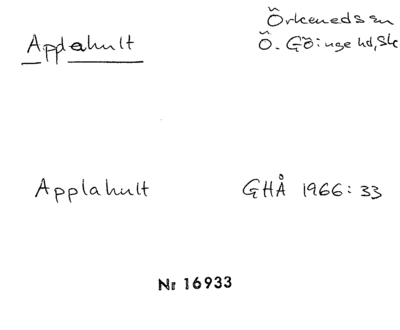 Appahult
Örkeneds sn
Ö. Göinge hd, Sk
Applahult
GHÅ 1966: 33
Nr 16933